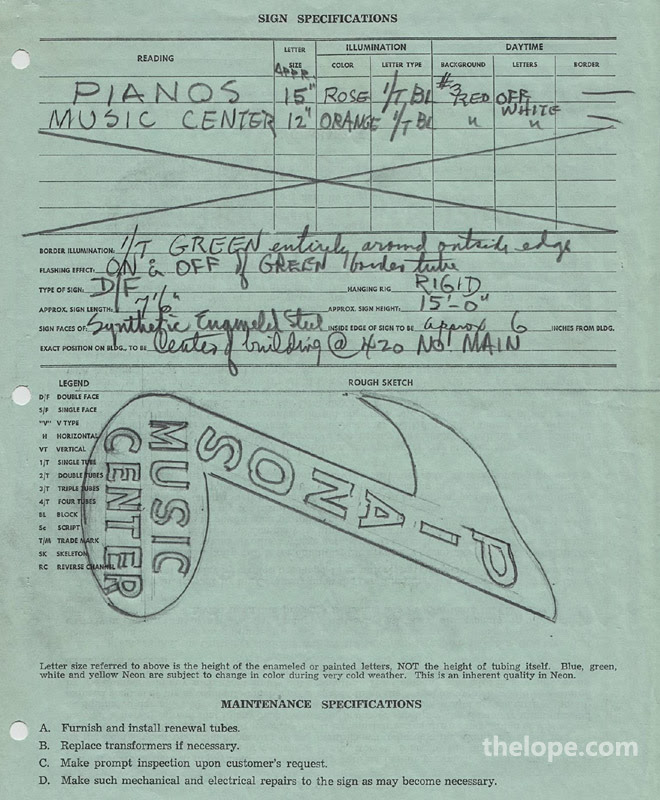 SIGN SPECIFICATIONS
READING LETTER SIZE ILLUMINATION DAYTIME
COLOR LETTER TYPE BACKGROUND LETTERS BORDER
APPR.
PIANOS 15" ROSE 1/T BL #3 RED OFF WHITE —
MUSIC CENTER 12" ORANGE 1/T BL " " —
BORDER ILLUMINATION: 1/T GREEN entirely around outside edge
FLASHING EFFECT: ON & OFF of GREEN border tube
TYPE OF SIGN: D/F HANGING RIG RIGID
APPROX. SIGN LENGTH: 7'6" APPROX. SIGN HEIGHT: 15'-0"
SIGN FACES OF: Synthetic Enameled Steel INSIDE EDGE OF SIGN TO BE approx 6 INCHES FROM BLDG.
EXACT POSITION ON BLDG. TO BE Center of building @ 420 NO. MAIN
LEGEND ROUGH SKETCH
D/F DOUBLE FACE
S/F SINGLE FACE
"V" V TYPE
H HORIZONTAL
VT VERTICAL
1/T SINGLE TUBE
2/T DOUBLE TUBES
3/T TRIPLE TUBES
4/T FOUR TUBES
BL BLOCK
Sc SCRIPT
T/M TRADE MARK
SK SKELETON
RC REVERSE CHANNEL
PIANOS
MUSIC
CENTER
Letter size referred to above is the height of the enameled or painted letters, NOT the height of tubing itself. Blue, green,
white and yellow Neon are subject to change in color during very cold weather. This is an inherent quality in Neon.
MAINTENANCE SPECIFICATIONS
A. Furnish and install renewal tubes.
B. Replace transformers if necessary.
C. Make prompt inspection upon customer's request.
D. Make such mechanical and electrical repairs to the sign as may become necessary.
thelope.com